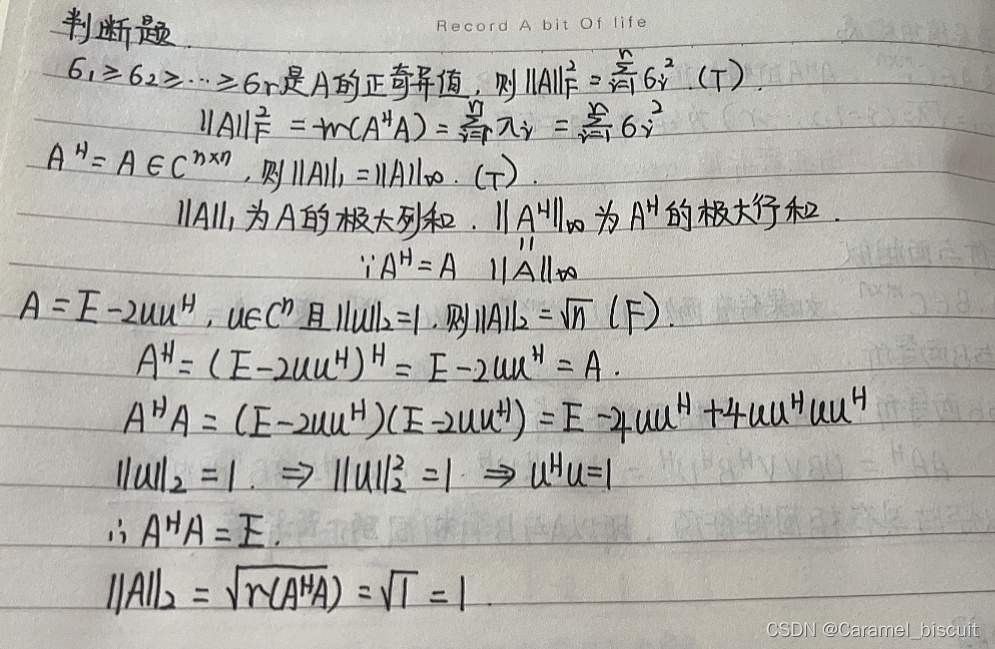 Record A bit Of life
判断题.
σ₁≥σ₂≥⋯≥σr是A的正奇异值,则||A||²F = ⁿΣᵢ₌₁ σᵢ². (T).
||A||²F = tr(AᴴA) = ⁿΣᵢ₌₁ λᵢ = ⁿΣᵢ₌₁ σᵢ²
Aᴴ=A∈Cⁿˣⁿ,则||A||₁=||A||∞. (T).
||A||₁为A的极大列和. ||Aᴴ||∞为Aᴴ的极大行和.
||
∵Aᴴ=A ||A||∞
A=E-2uuᴴ, u∈Cⁿ且||u||₂=1.则||A||₂=√n (F).
Aᴴ=(E-2uuᴴ)ᴴ=E-2uuᴴ=A.
AᴴA=(E-2uuᴴ)(E-2uuᴴ)=E-4uuᴴ+4uuᴴuuᴴ
||u||₂=1. ⇒ ||u||₂²=1. ⇒ uᴴu=1
∴AᴴA=E.
||A||₂=√r(AᴴA)=√1=1.
CSDN @Caramel_biscuit